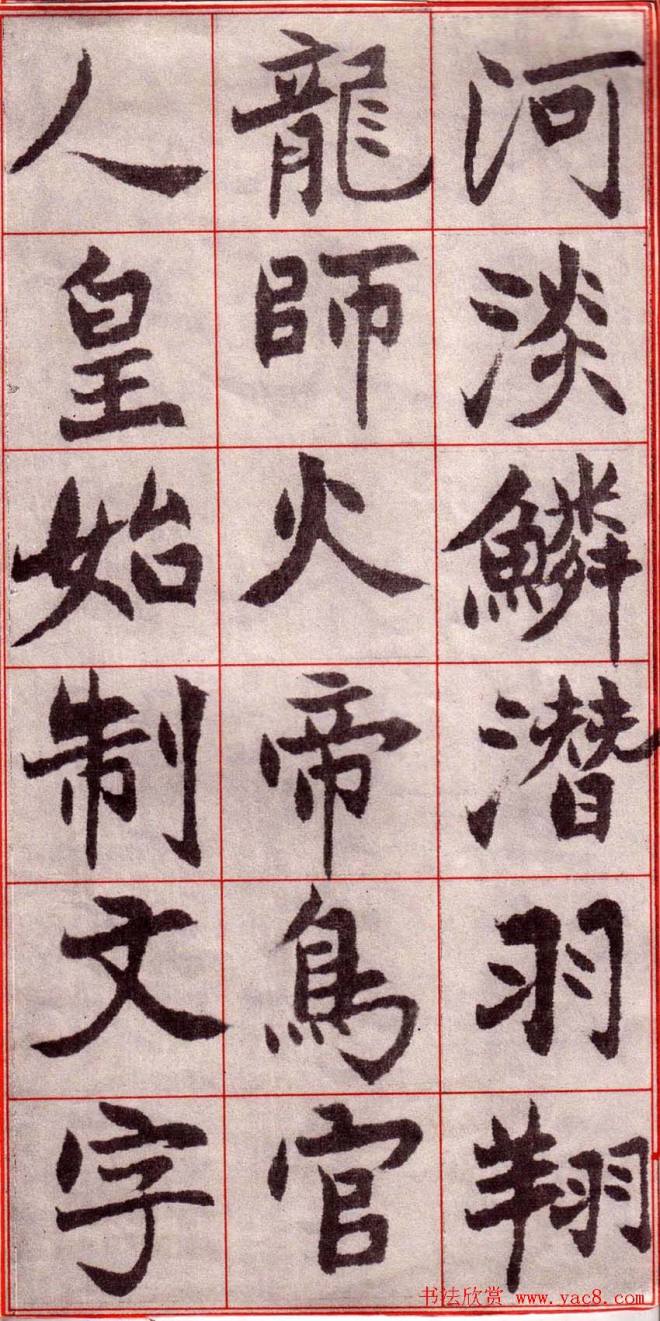 河淡鳞潛羽翔
龍師火帝鳥官
人皇始制文字
书法欣赏 www.yac8.com